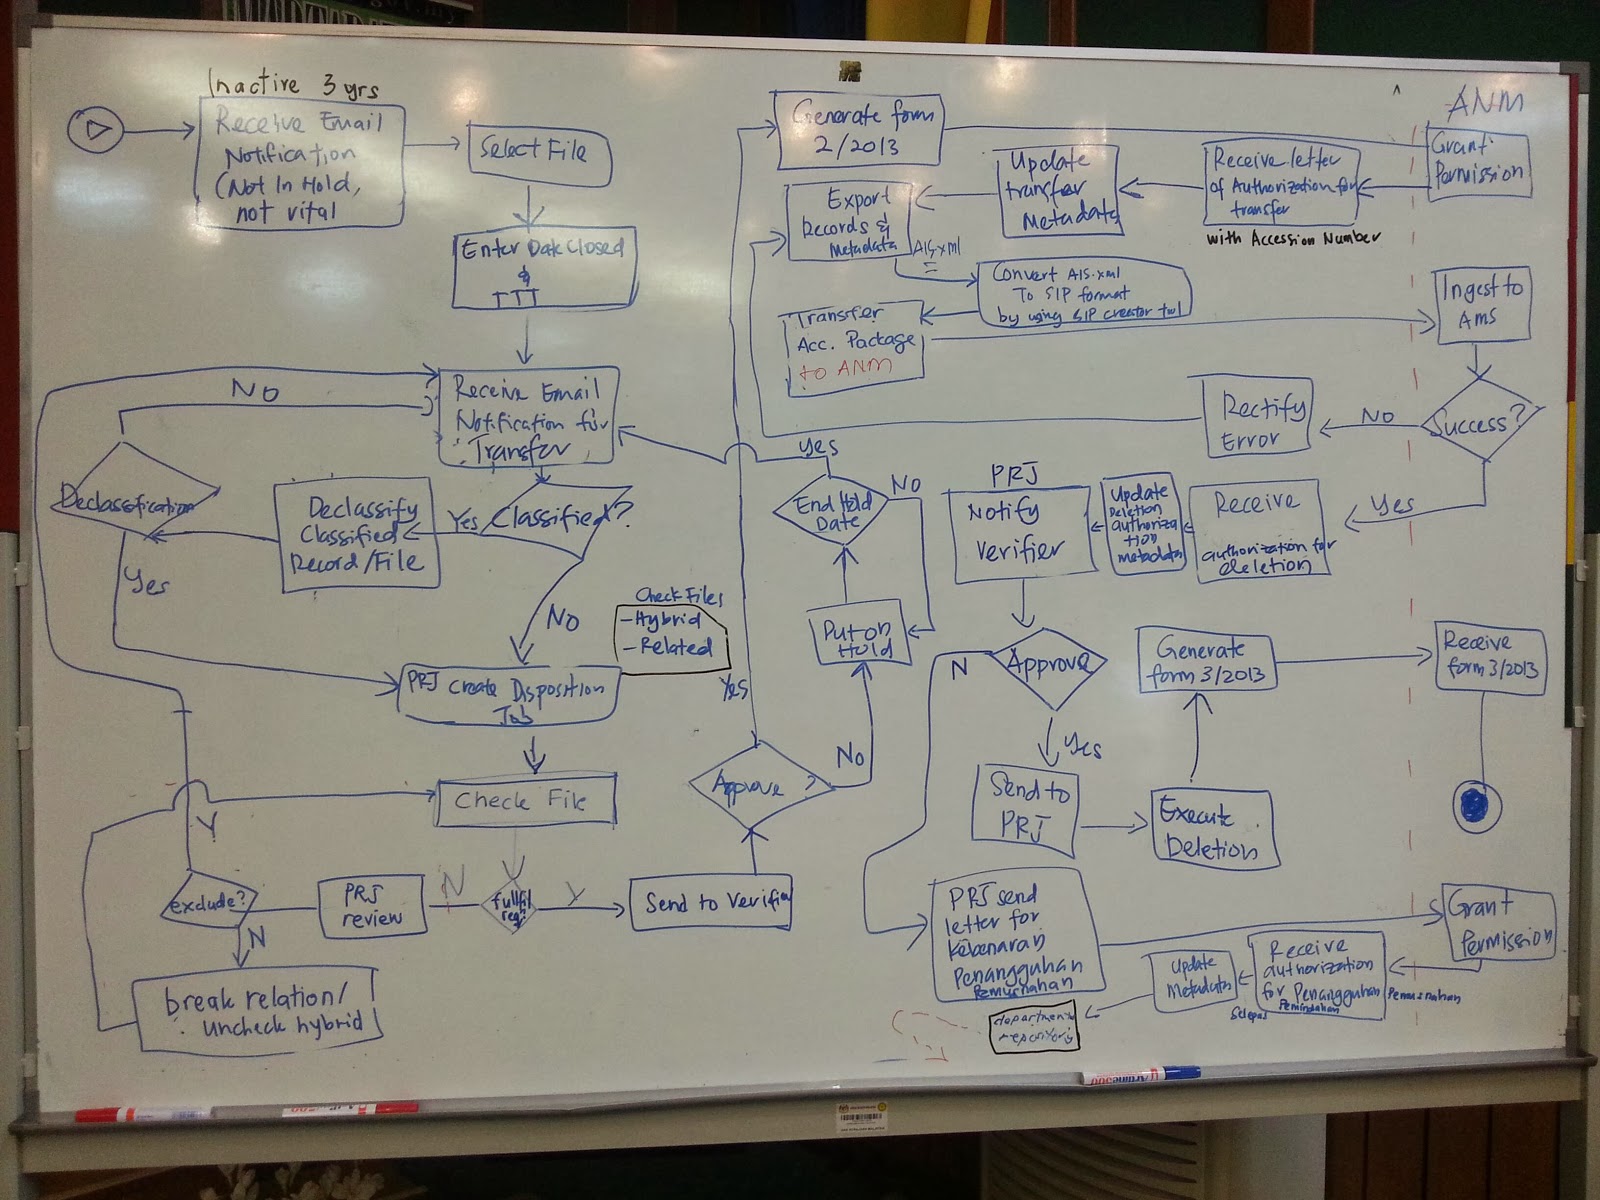 Inactive 3 yrs
Receive Email
Notification
(Not In Hold,
not vital
Select File
Enter Date Closed
&
TTT
Receive Email
Notification for
Transfer
NO
Declassification
Declassify
Classified
Record/File
Yes
Classified?
Yes
NO
Check Files
- Hybrid
- Related
PRJ Create Disposition
Job
Check File
fullfil
req
N
Y
PRJ
review
exclude?
Y
N
break relation/
uncheck hybrid
Send to Verifier
Approve ?
Yes
No
Put on
Hold
End Hold
Date
yes
NO
Generate form
2/2013
ANM
Grant
Permission
Receive letter
of Authorization for
transfer
with Accession Number
Update
transfer
Metadata
Export
Records &
Metadata
AIS.xml
Convert AIS.xml
To SIP format
by using SIP creator tool
Transfer
Acc. Package
to ANM
Ingest to
AMS
Success?
NO
Rectify
Error
Yes
Receive
authorization for
deletion
Update
Deletion
authoriza
tion
metadata
PRJ
Notify
verifier
Approve
N
Yes
Send to
PRJ
Execute
Deletion
Generate
form 3/2013
Receive
form 3/2013
PRJ send
letter for
kebenaran
Penangguhan
Pemusnahan
Grant
Permission
Receive
authorization
for Penangguhan
Pemindahan
Pemusnahan
Selepas
Update
Metadata